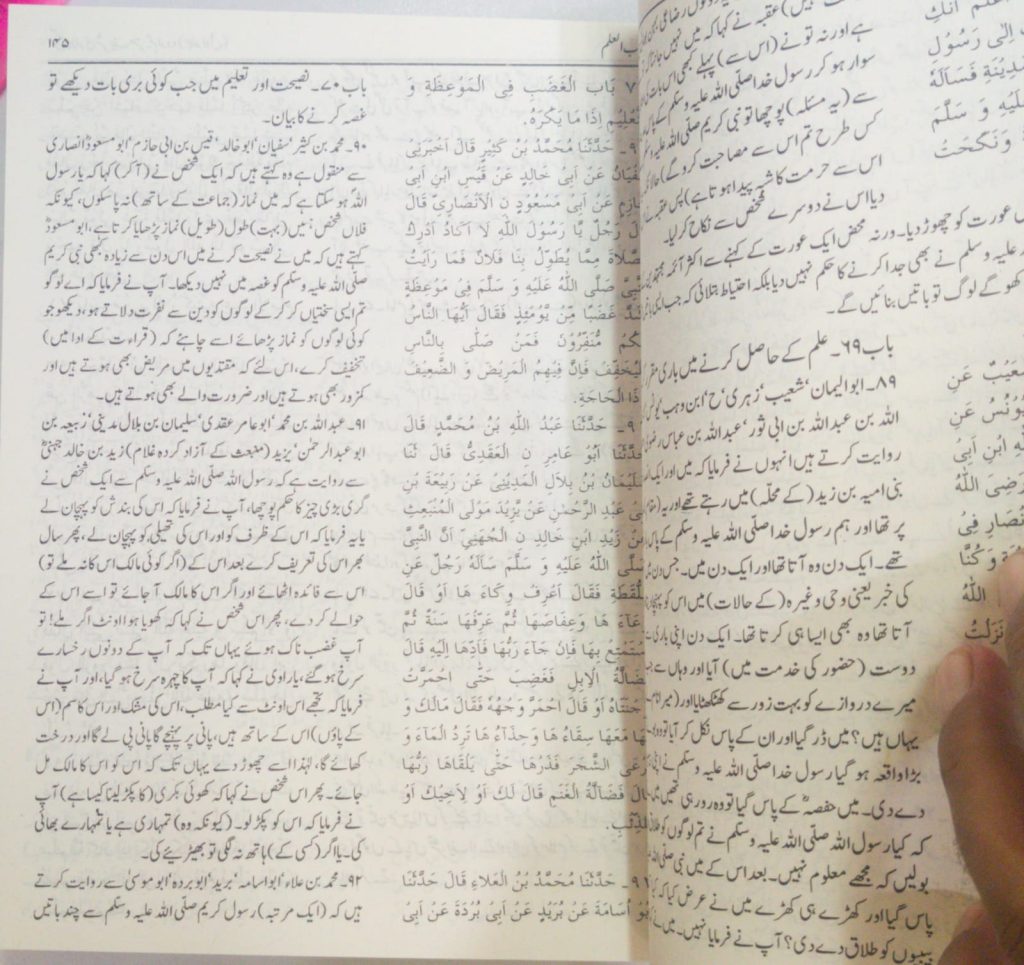 ۱۴۵
ب العلم
باب ۷۰۔ نصیحت اور تعلیم میں جب کوئی بری بات دیکھے تو
غصہ کرنے کا بیان۔
۹۰۔ محمد بن کثیر، سفیان، ابو خالد، قیس بن ابی حازم، ابو مسعودؓ انصاری
سے منقول ہے وہ کہتے ہیں کہ ایک شخص نے (آ کر) کہا کہ یا رسول
اللہ ہو سکتا ہے کہ میں نماز (جماعت کے ساتھ) نہ پا سکوں، کیونکہ
فلاں شخص، ہمیں (بہت) طول (طویل) نماز پڑھایا کرتا ہے، ابو مسعودؓ
کہتے ہیں کہ میں نے نصیحت کرنے میں اس دن سے زیادہ کبھی نبی کریم
صلی اللہ علیہ وسلم کو غصہ میں نہیں دیکھا۔ آپ نے فرمایا کہ اے لوگو
تم ایسی سختیاں کر کر کے لوگوں کو دین سے نفرت دلاتے ہو، دیکھو جو
کوئی لوگوں کو نماز پڑھائے اسے چاہئے کہ (قراءت کے ادا میں)
تخفیف کرے، اس لئے کہ مقتدیوں میں مریض بھی ہوتے ہیں اور
کمزور بھی ہوتے ہیں اور ضرورت والے بھی ہوتے ہیں۔
۹۱۔ عبداللہ بن محمد، ابو عامر عقدی، سلیمان بن بلال مدینی، ربیعہ بن
ابو عبدالرحمٰن، یزید (منبعث کے آزاد کردہ غلام) زید بن خالد جہنیؓ
سے روایت ہے کہ رسول اللہ صلی اللہ علیہ وسلم سے ایک شخص نے
گری پڑی چیز کا حکم پوچھا، آپ نے فرمایا کہ اس کی بندش کو پہچان لے
یا یہ فرمایا کہ اس کے ظرف کو اور اس کی تھیلی کو پہچان لے، پھر سال
بھر اس کی تعریف کرے بعد اس کے (اگر کوئی مالک اس کا نہ ملے تو)
اس سے فائدہ اٹھائے اور اگر اس کا مالک آ جائے تو اسے اس کے
حوالے کر دے، پھر اس شخص نے کہا کہ کھویا ہوا اونٹ اگر ملے! تو
آپ غضب ناک ہوئے یہاں تک کہ آپ کے دونوں رخسارے
سرخ ہو گئے، یا راوی نے کہا کہ آپ کا چہرہ سرخ ہو گیا، اور آپ نے
فرمایا کہ تجھے اس اونٹ سے کیا مطلب، اس کی مشک اور اس کا سم (اس
کے پاؤں) اس کے ساتھ ہیں، پانی پر پہنچے گا پانی پی لے گا اور درخت
کھائے گا، لہٰذا اسے چھوڑ دے یہاں تک کہ اس کو اس کا مالک مل
جائے۔ پھر اس شخص نے کہا کہ کھوئی بکری (کا پکڑ لینا کیسا ہے) آپ
نے فرمایا کہ اس کو پکڑ لو۔ (کیونکہ وہ) تمہاری ہے یا تمہارے بھائی
کی۔ یا اگر (کسی کے) ہاتھ نہ لگی تو بھیڑیئے کی۔
۹۲۔ محمد بن علاء، ابو اسامہ، برید، ابو بردہ، ابو موسیٰ سے روایت کرتے
ہیں کہ (ایک مرتبہ) رسول کریم صلی اللہ علیہ وسلم سے چند باتیں
۷ بَابُ الْغَضَبِ فِى الْمَوْعِظَةِ وَ
إِذَا مَا يَكْرَهُ۔
حَدَّثَنَا مُحَمَّدُ بْنُ كَثِيْرٍ قَالَ اَخْبَرَنِىْ
عَنْ اَبِىْ خَالِدٍ عَنْ قَيْسِ ابْنِ اَبِىْ
عَنْ اَبِىْ مَسْعُوْدِ نِ الْاَنْصَارِىِّ قَالَ
رَجُلٌ يَّا رَسُوْلَ اللّٰهِ لَا اَكَادُ اُدْرِكُ
مِمَّا يُطَوِّلُ بِنَا فُلَانٌ فَمَا رَاَيْتُ
صَلَّى اللّٰهُ عَلَيْهِ وَ سَلَّمَ فِىْ مَوْعِظَةٍ
غَضَبًا مِّنْ يَّوْمَئِذٍ فَقَالَ اَيُّهَا النَّاسُ
مُنَفِّرُوْنَ فَمَنْ صَلّٰى بِالنَّاسِ
فَاِنَّ فِيْهِمُ الْمَرِيْضَ وَ الضَّعِيْفَ
الْحَاجَةِ۔
حَدَّثَنَا عَبْدُ اللّٰهِ بْنُ مُحَمَّدٍ قَالَ
حَدَّثَنَا اَبُوْ عَامِرِ نِ الْعَقَدِىُّ قَالَ ثَنَا
سُلَيْمَانُ بْنُ بِلَالِ الْمَدِيْنِىُّ عَنْ رَبِيْعَةَ بْنِ
عَبْدِ الرَّحْمٰنِ عَنْ يَّزِيْدَ مَوْلَى الْمُنْبَعِثِ
زَيْدِ ابْنِ خَالِدِ نِ الْجُهَنِىِّ اَنَّ النَّبِىَّ
صَلَّى اللّٰهُ عَلَيْهِ وَ سَلَّمَ سَاَلَهٗ رَجُلٌ عَنِ
اللُّقَطَةِ فَقَالَ اَعْرِفْ وِكَاءَ هَا اَوْ قَالَ
وِعَاءَ هَا وَعِفَاصَهَا ثُمَّ عَرِّفْهَا سَنَةً ثُمَّ
اسْتَمْتِعْ بِهَا فَاِنْ جَاءَ رَبُّهَا فَاَدِّهَا اِلَيْهِ قَالَ
فَضَالَّةُ الْاِبِلِ فَغَضِبَ حَتّٰى احْمَرَّتْ
وَجْنَتَاهُ اَوْ قَالَ احْمَرَّ وَجْهُهٗ فَقَالَ مَالَكَ وَ
مَعَهَا سِقَاءُ هَا وَحِذَاءُ هَا تَرِدُ الْمَاءَ وَ
تَرْعَى الشَّجَرَ فَذَرْهَا حَتّٰى يَلْقَاهَا رَبُّهَا
قَالَ فَضَالَّةُ الْغَنَمِ قَالَ لَكَ اَوْ لِاَخِيْكَ اَوْ
لِلذِّئْبِ۔
حَدَّثَنَا مُحَمَّدُ بْنُ الْعَلَاءِ قَالَ حَدَّثَنَا
اُسَامَةَ عَنْ بُرَيْدٍ عَنْ اَبِىْ بُرْدَةَ عَنْ اَبِىْ
عقبہ نے کہا کہ میں نہیں جانتا
ہے اور نہ تو نے (اس سے) پہلے کبھی اس بات کی
سوار ہو کر رسول خدا صلی اللہ علیہ وسلم کے پاس
سے (یہ مسئلہ) پوچھا تو نبی کریم صلی اللہ علیہ وسلم
کس طرح تم اس سے مصاحبت کرو گے) حالانکہ
اس سے حرمت کا شبہ پیدا ہوتا ہے) پس عقبہ نے
دیا اس نے دوسرے شخص سے نکاح کر لیا۔
عورت کو چھوڑ دیا۔ ورنہ محض ایک عورت کے کہنے سے اکثر آئمہ
علیہ وسلم نے بھی جدا کرنے کا حکم نہیں دیا بلکہ احتیاط بتلائی کہ جب
کھو گے لوگ تو باتیں بنائیں گے۔
باب ۶۹۔ علم کے حاصل کرنے میں باری مقرر
۸۹۔ ابو الیمان، شعیب، زہری، ح، ابن وہب، یونس
اللہ بن عبداللہ بن ابی ثور، عبداللہ بن عباس
روایت کرتے ہیں انہوں نے فرمایا کہ میں اور ایک
بنی امیہ بن زید (کے محلہ) میں رہتے تھے اور یہ
پر تھا اور ہم رسول خدا صلی اللہ علیہ وسلم کے پاس
تھے۔ ایک دن وہ آتا تھا اور ایک دن میں۔ جس دن
کی خبر یعنی وحی وغیرہ (کے حالات) میں اس کو
آتا تھا وہ بھی ایسا ہی کرتا تھا۔ ایک دن اپنی باری
دوست (حضور کی خدمت میں) آیا اور وہاں سے
میرے دروازے کو بہت زور سے کھٹکھٹایا اور
یہاں ہیں؟ میں ڈر گیا اور ان کے پاس نکل کر آیا تو
بڑا واقعہ ہو گیا رسول خدا صلی اللہ علیہ وسلم نے
دے دی۔ میں حفصہؓ کے پاس گیا تو وہ رو رہی تھیں
کہ کیا رسول اللہ صلی اللہ علیہ وسلم نے تم لوگوں کو
بولیں کہ مجھے معلوم نہیں۔ بعد اس کے میں نبی صلی اللہ
پاس گیا اور کھڑے ہی کھڑے میں نے عرض کیا کہ
بیبیوں کو طلاق دے دی؟ آپ نے فرمایا نہیں۔ میں نے
اِلٰى رَسُوْلِ
فَسَاَلَهٗ
عَلَيْهِ وَ سَلَّمَ
وَنَكَحَتْ
شُعَيْبٌ عَنِ
يُوْنُسُ عَنِ
ابْنِ اَبِىْ
رَضِىَ اللّٰهُ
فِىْ
وَ كُنَّا
اللّٰهُ
نَزَلْتُ